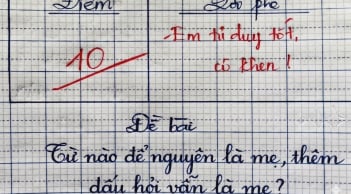 Điểm Lời phê
10 Em tư duy tốt,
cô khen !
Đề bài
Từ nào để nguyên là mẹ, thêm
dấu hỏi vẫn là mẹ ?